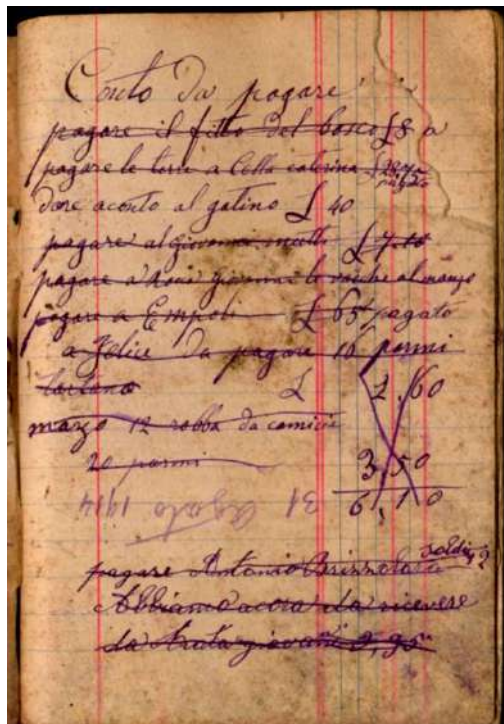 Conto da pagare
pagare il fitto del bosco £ 8 a
pagare le torse a Cella caterina £
dare aconto al gatino £ 40
pagare al giovanni £ 7.10
pagare a giovanni le al manzo
pagare a Empoli £ 65 pagato
a Felice da pagare 16 parmi
£ 2.60
marzo 12 robba da camicie
20 parmi 3,50
31 agosto 1914
6,10
pagare Antonio Brizzolara soldi 2
Abbiamo acora da ricevere
da giovani 2,95